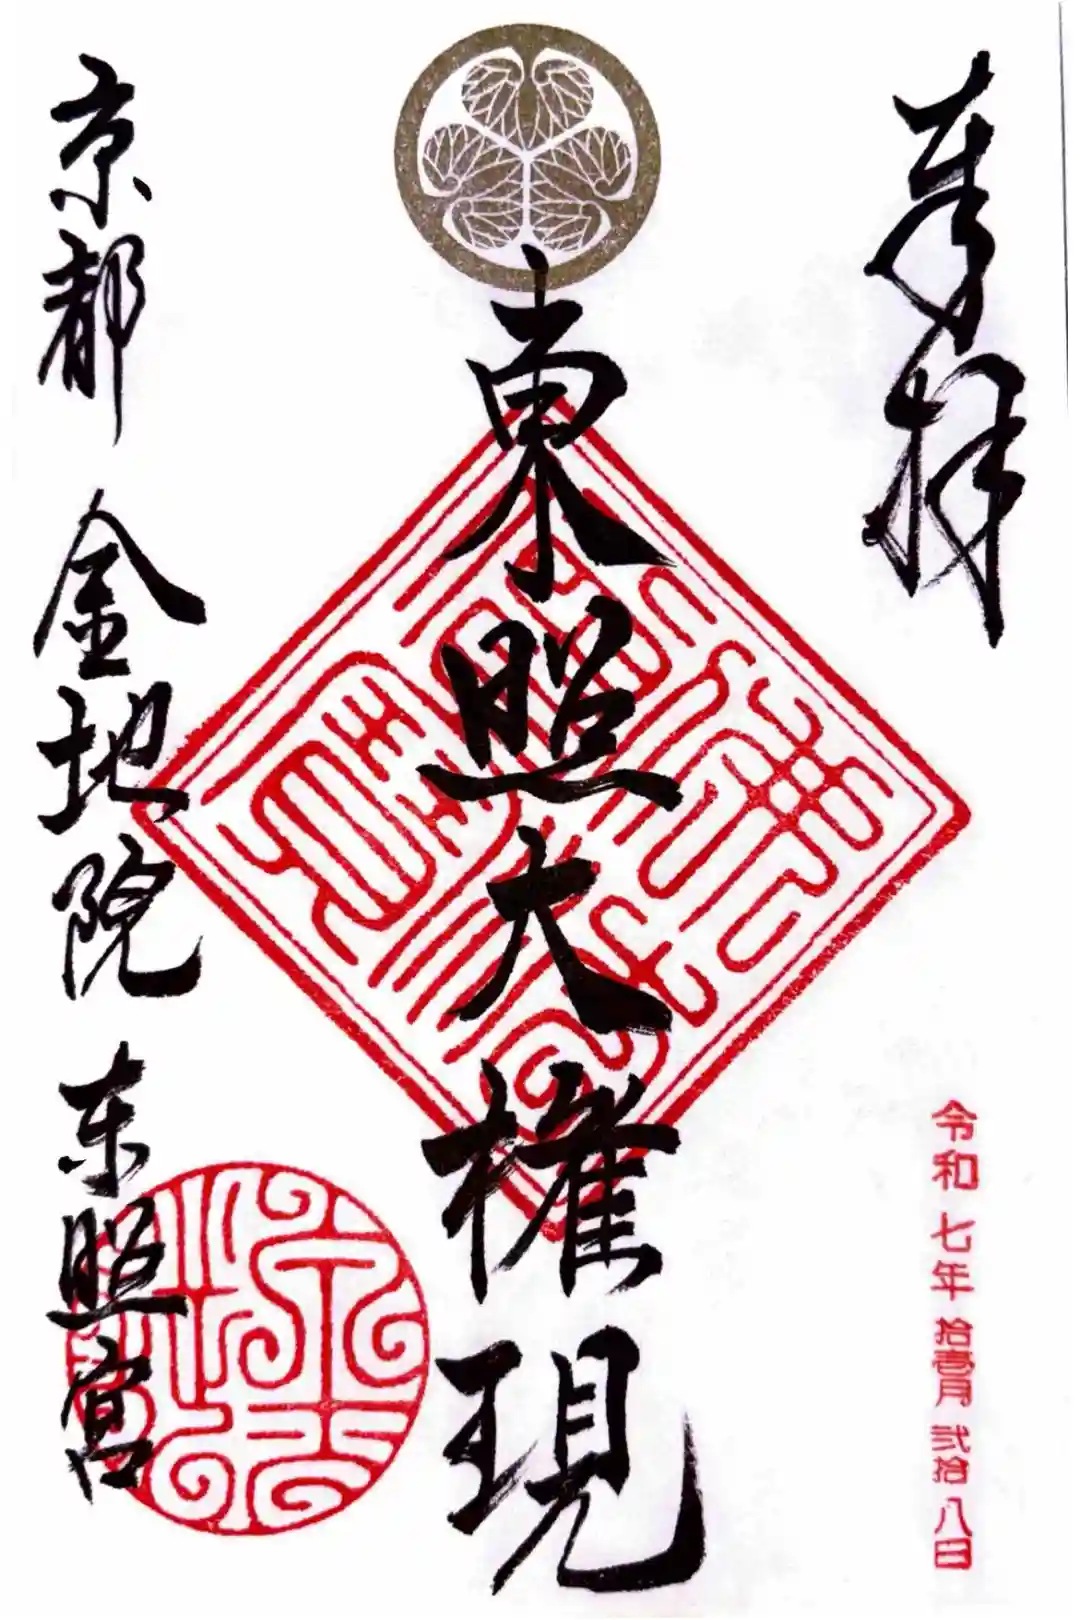 奉拝
令和七年拾壱月弐拾八日
東照大権現
京都 金地院 東照宮